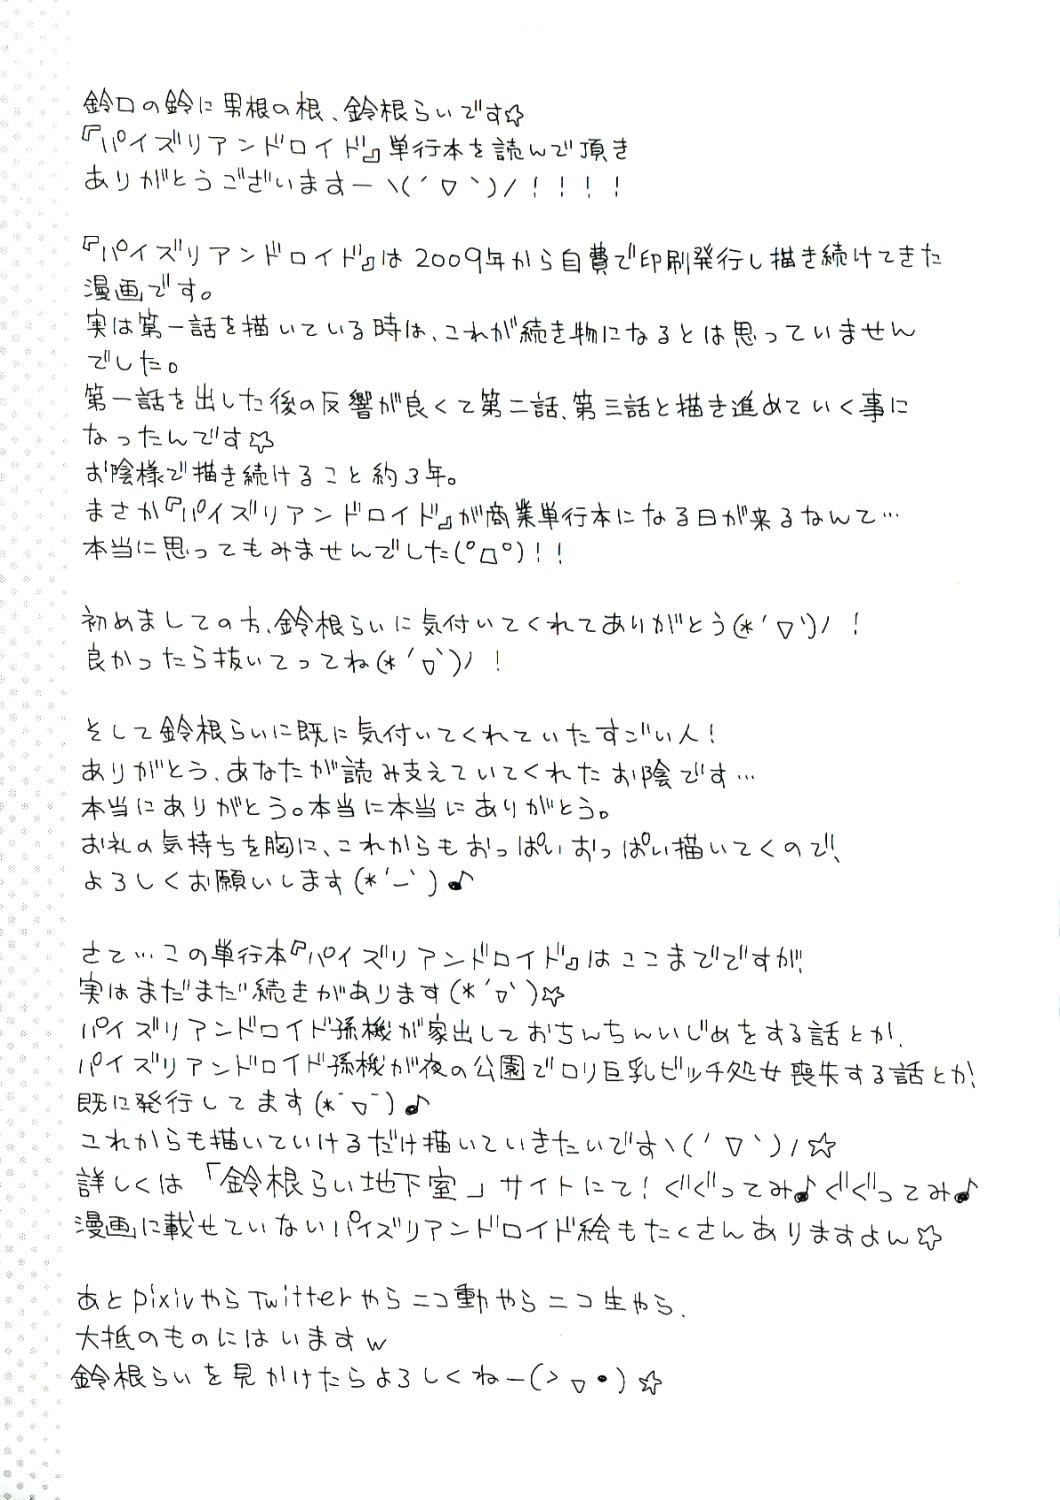 鈴口の鈴に男根の根、鈴根らいです☆
『パイズリアンドロイド』単行本を読んで頂き
ありがとうございますーヽ(´▽`)ノ！！！！
『パイズリアンドロイド』は2009年から自費で印刷発行し描き続けてきた
漫画です。
実は第一話を描いている時は、これが続き物になるとは思っていません
でした。
第一話を出した後の反響が良くて第二話、第三話と描き進めていく事に
なったんです☆
お陰様で描き続けること約3年。
まさか『パイズリアンドロイド』が商業単行本になる日が来るなんて…
本当に思ってもみませんでした(°□°)！！
初めましての方、鈴根らいに気付いてくれてありがとう(*´▽`)ノ！
良かったら抜いてってね(*´▽`)ノ！
そして鈴根らいに既に気付いてくれていたすごい人！
ありがとう、あなたが読み支えていてくれたお陰です…
本当にありがとう。本当に本当にありがとう。
お礼の気持ちを胸に、これからもおっぱいおっぱい描いてくので、
よろしくお願いします(*´ー`)♪
さて…この単行本『パイズリアンドロイド』はここまでですが、
実はまだまだ続きがあります(*´▽`)☆
パイズリアンドロイド孫機が家出しておちんちんいじめをする話とか、
パイズリアンドロイド孫機が夜の公園でロリ巨乳ビッチ処女喪失する話とか、
既に発行してます(*ˉ▽ˉ)♪
これからも描いていけるだけ描いていきたいですヽ(´▽`)ノ☆
詳しくは「鈴根らい地下室」サイトにて！ぐぐってみ♪ぐぐってみ♪
漫画に載せていないパイズリアンドロイド絵もたくさんありますよん☆
あとpixivやらTwitterやらニコ動やらニコ生やら、
大抵のものにはいますw
鈴根らいを見かけたらよろしくねー(＞▽•)☆